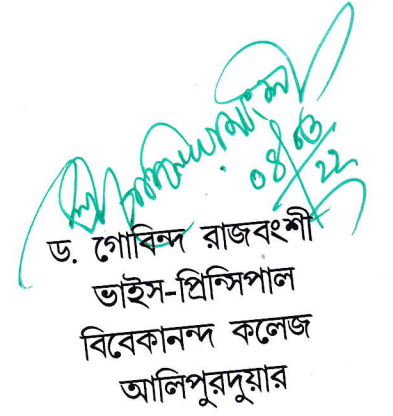 ০৪/০৩/২২
ড. গোবিন্দ রাজবংশী
ভাইস-প্রিন্সিপাল
বিবেকানন্দ কলেজ
আলিপুরদুয়ার